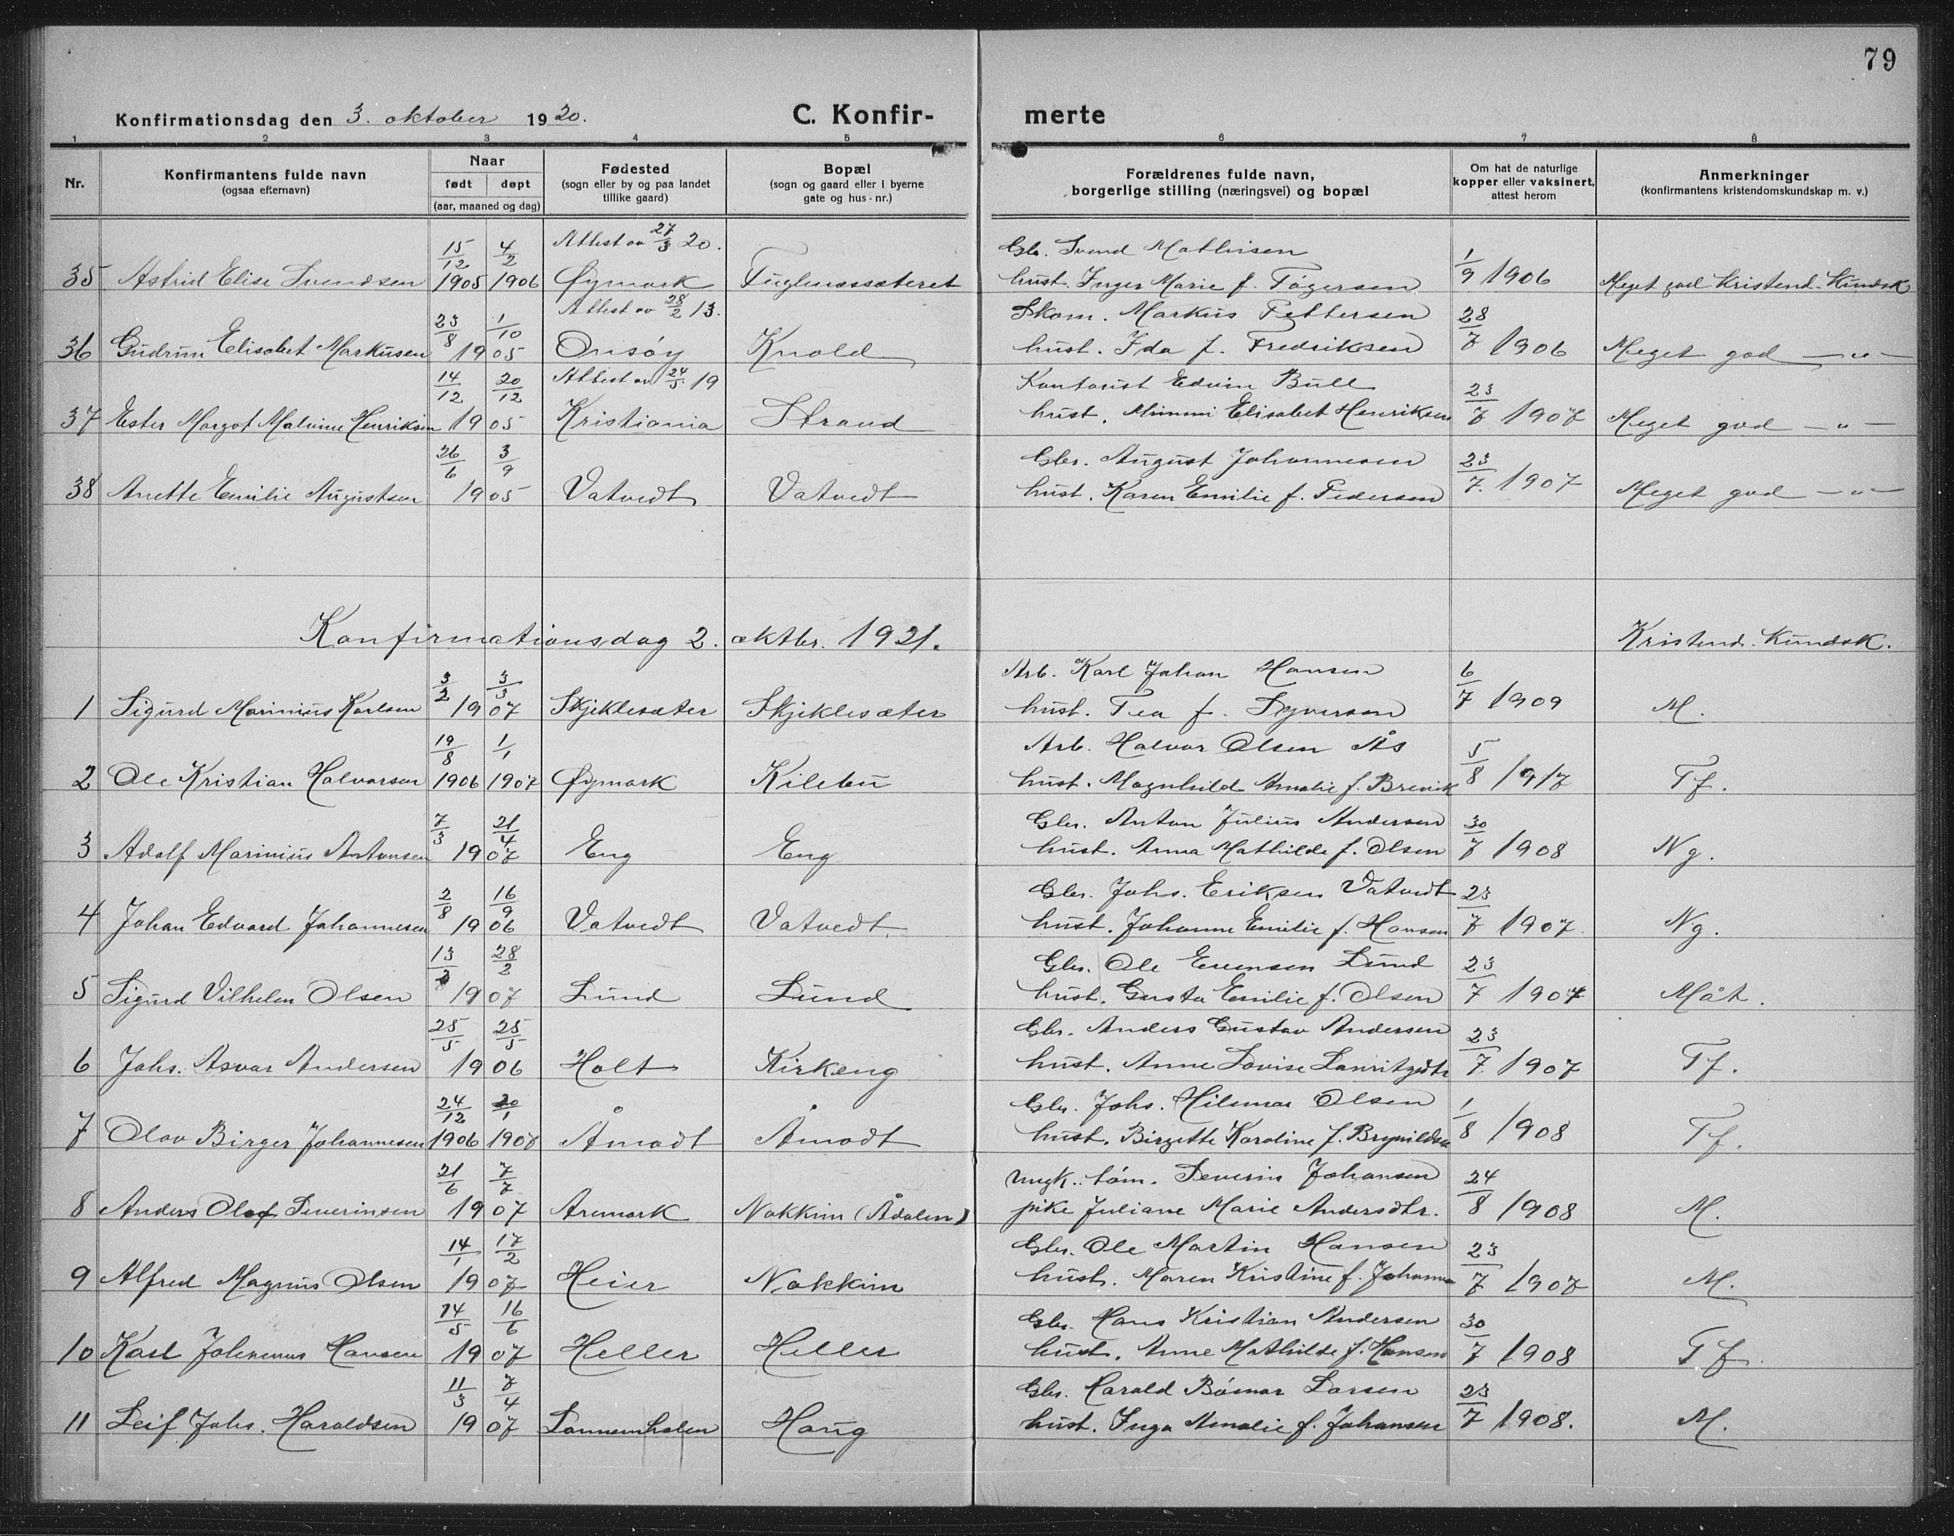 79
Konfirmationsdag den 3. oktober 1920. C. Konfirmerte
1 2 3 4 5 6 7 8
Nr. Konfirmantens fulde navn (ogsaa efternavn) Naar født døpt (aar, maaned og dag) Fødested (sogn eller by og paa landet tillike gaard) Bopæl (sogn og gaard eller i byerne gate og hus-nr.) Forældrenes fulde navn, borgerlige stilling (næringsvei) og bopæl Om hat de naturlige kopper eller vaksinert, attest herom Anmerkninger (konfirmantens kristendomskundskap m. v.)
15/12 4/2 Attest av 27/3 20. Gbr. Svend Mathisen
35 Astrid Elise Svendsen 1905 1906 Øymark Fuglenessæteret hust. Inger Marie f. Tøgersen 1/9 1906 Meget god Kristend. Kundsk
23/8 1/10 Attest av 28/2 13. Skom. Markus Pettersen
36 Gudrun Elisabet Markusen 1905 Onsøy Knold hust. Ida f. Fredriksen 28/7 1906 Meget god — " —
14/12 20/12 Attest av 24/5 19 Kontorist Edvin Bull
37 Ester Margot Malvine Henriksen 1905 Kristiania Strand hust. Mimmi Elisabet Henriksen 23/7 1907 Meget god — " —
26/6 3/9 Gbr. August Johannesen
38 Anette Emilie Augustsen 1905 Vatvedt Vatvedt hust. Karen Emilie f. Pedersen 23/7 1907 Meget god — " —
Konfirmationsdag 2. oktbr. 1921. Kristend. Kundsk.
3/2 3/3 Arb. Karl Johan Hansen
1 Sigurd Marinius Karlsen 1907 Skjiklesæter Skjiklesæter hust. Tea f. Syversen 6/7 1909 M.
19/8 1/1 Arb. Halvor Olsen Ås
2 Ole Kristian Halvorsen 1906 1907 Øymark Kilebu hust. Magnhild Amalie f. Brevik 5/8 1917 Tf.
7/3 21/4 Gbr. Anton Julius Andersen
3 Adolf Marinius Antonsen 1907 Eng Eng hust. Anna Mathilde f. Olsen 30/7 1908 Ng.
2/8 16/9 Gbr. Johs. Eriksen Vatvedt
4 Johan Edvard Johannesen 1906 Vatvedt Vatvedt. hust. Johanne Emilie f. Hansen 23/7 1907. Ng.
13/2 28/2 Gbr. Ole Evensen Lund
5 Sigurd Vilhelm Olsen 1907 Lund Lund hust. Gusta Emilie f. Olsen 23/7 1907 Måt.
25/5 25/5 Gbr. Anders Gustav Andersen
6 Johs. Asvar Andersen 1906 Holt Kirkeng hust. Anne Lovise Lauritzdtr 23/7 1907 Tf.
24/12 20/1 Gbr. Johs. Hilmar Olsen
7 Olav Birger Johannesen 1906 1907 Åmodt Åmodt hust. Birgette Karoline f. Brynildsen 1/8 1908 Tf.
21/6 7/7 ungk. tøm. Severin Johansen
8 Anders Olaf Severinsen 1907 Aremark Nokkim (Ådalen) pike Juliane Marie Andersdtr. 24/8 1908 M.
14/1 17/2 Gbr. Ole Martin Hansen
9 Alfred Magnus Olsen 1907 Heier Nokkim hust. Maren Kristine f. Johannes 23/7 1907 M.
14/5 16/6 Gbr. Hans Kristian Andersen
10 Karl Johannes Hansen 1907 Heller Heller hust. Anne Mathilde f. Hansen 30/7 1908 Tf.
11/3 7/4 Gbr. Harald Bømar Larsen
11 Leif Johs. Haraldsen 1907 Sannemholen Haug hust. Inga Amalie f. Johansen 23/7 1908. M.